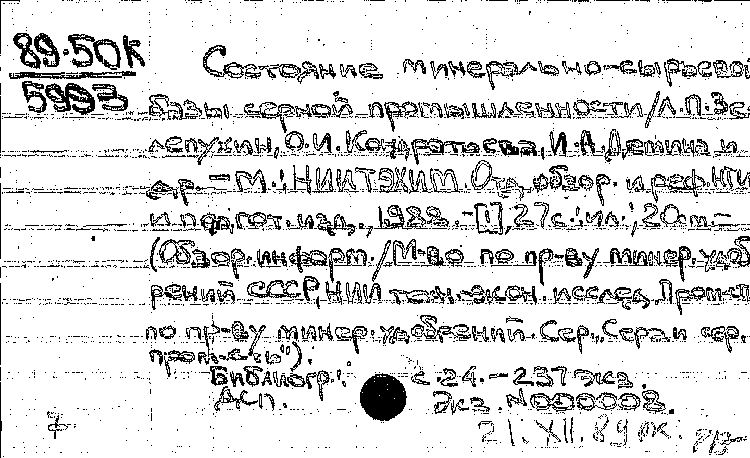 89-50К
5993
Состояние минерально-сырьевой
базы серной промышленности/Л.П.Зе-
лепухин, О.И.Кондратьева, И.А.Демина и
др. - М.: НИИТЭХИМ. Отд. обзор. и реф. НТИ
и подгот. изд., 1988. - [1], 27 с.: ил.; 20 см. -
(Обзор. информ./М-во по пр-ву минер. удоб-
рений СССР, НИИ техн.-экон. исслед. Пром-сть
по пр-ву минер. удобрений. Сер. "Сера и сер.
пром-сть").
Библиогр.: с. 24. - 237 экз.
ДСП. Экз. N000008.
21.XII.89